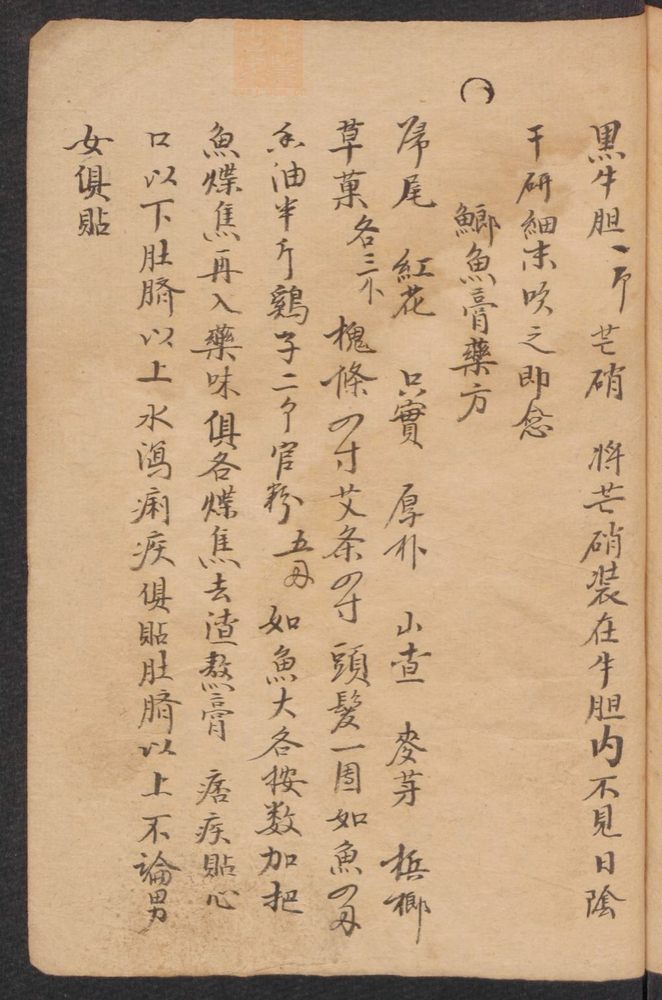 黒牛胆一个 芒硝 将芒硝装在牛胆内不見日陰
干研細末吹之即念
鯽魚膏藥方
歸尾 紅花 只實 厚朴 山查 麥芽 梹榔
草菓各三个 槐條四寸艾条四寸頭髮一團如魚四两
香油半斤鷄子二个官粉五两 如魚大各按数加把
魚煠焦再入藥味俱各煠焦去渣熬膏 痞疾貼心
口以下肚臍以上水瀉痢疾俱貼肚臍以上不論男
女俱貼